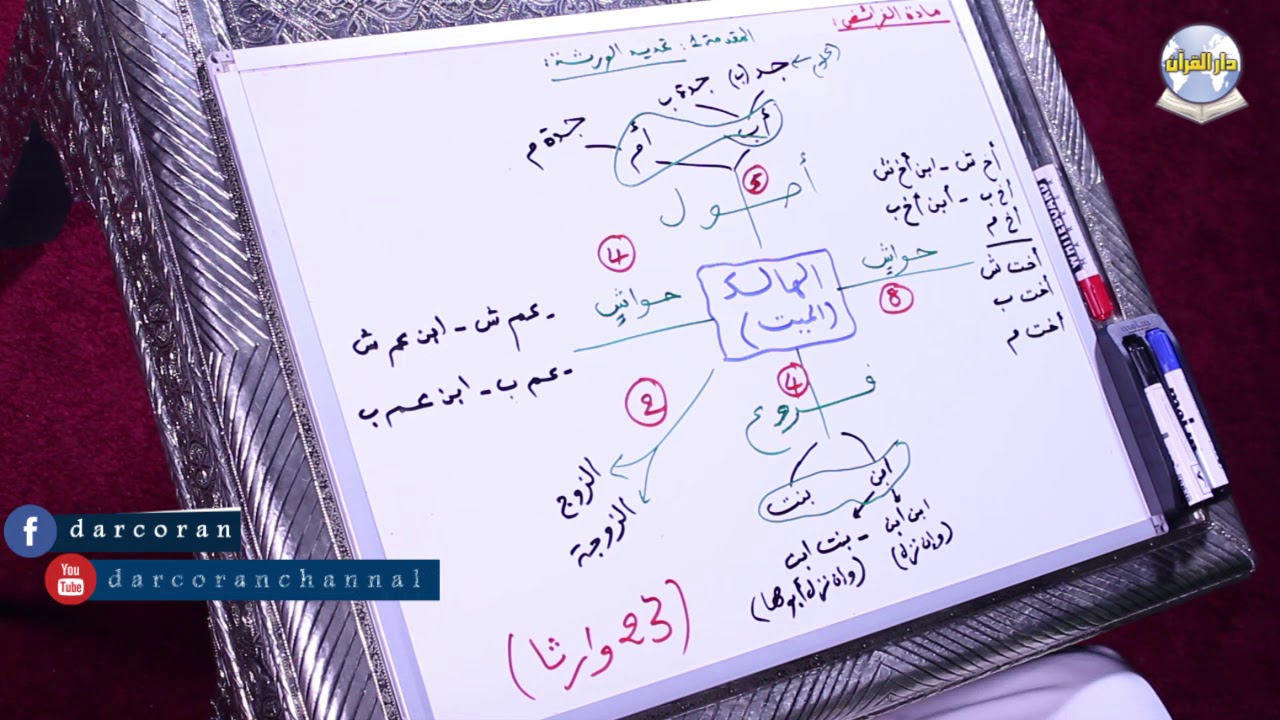 مادة الفرائض:
المقدمة 1: تحديد الورثة:
دار القرآن
جد (ب)
جدة ب
جدة م
أب
أم
5
أصول
أخ ش - ابن أخ ش
أخ ب - ابن أخ ب
أخ م
أخت ش
أخت ب
أخت م
حواشي
8
الهالك
(الميت)
4
حواشي
- عم ش - ابن عم ش
- عم ب - ابن عم ب
2
الزوج
الزوجة
4
فروع
ابن
بنت
ابن ابن - بنت ابن
(وإن نزل)
(وإن نزل أبوها)
(23 وارثا)
WHITEBOARD
darcoran
You Tube
darcoranchannal